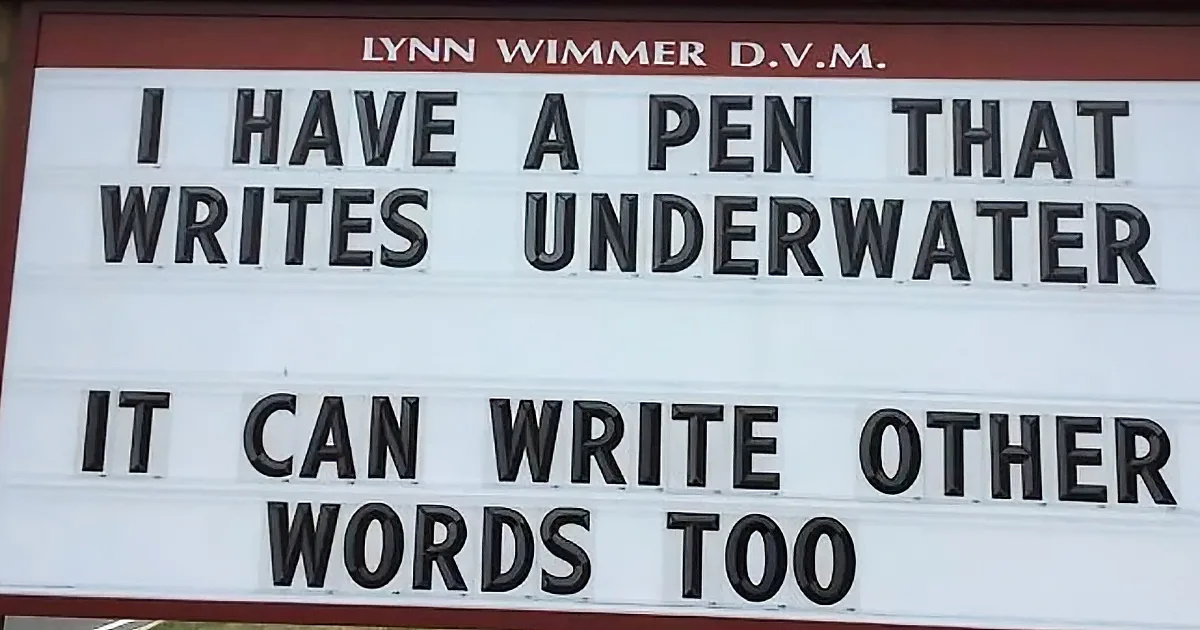 LYNN WIMMER D.V.M.
I HAVE A PEN THAT
WRITES UNDERWATER
IT CAN WRITE OTHER
WORDS TOO